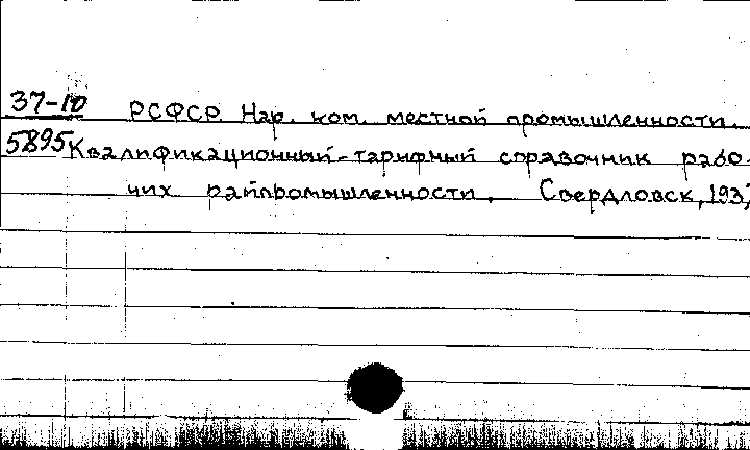 37-10 РСФСР. Нар. ком. местной промышленности.
5895 Квалификационный-тарифный справочник рабо-
чих райпромышленности. Свердловск, 193